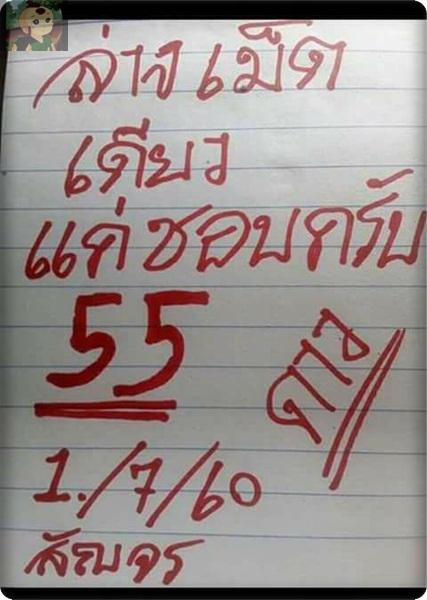 ล่างเม็ด
เดียว
แค่ชอบครับ
55
ดาว
1./7/60
สัญจร